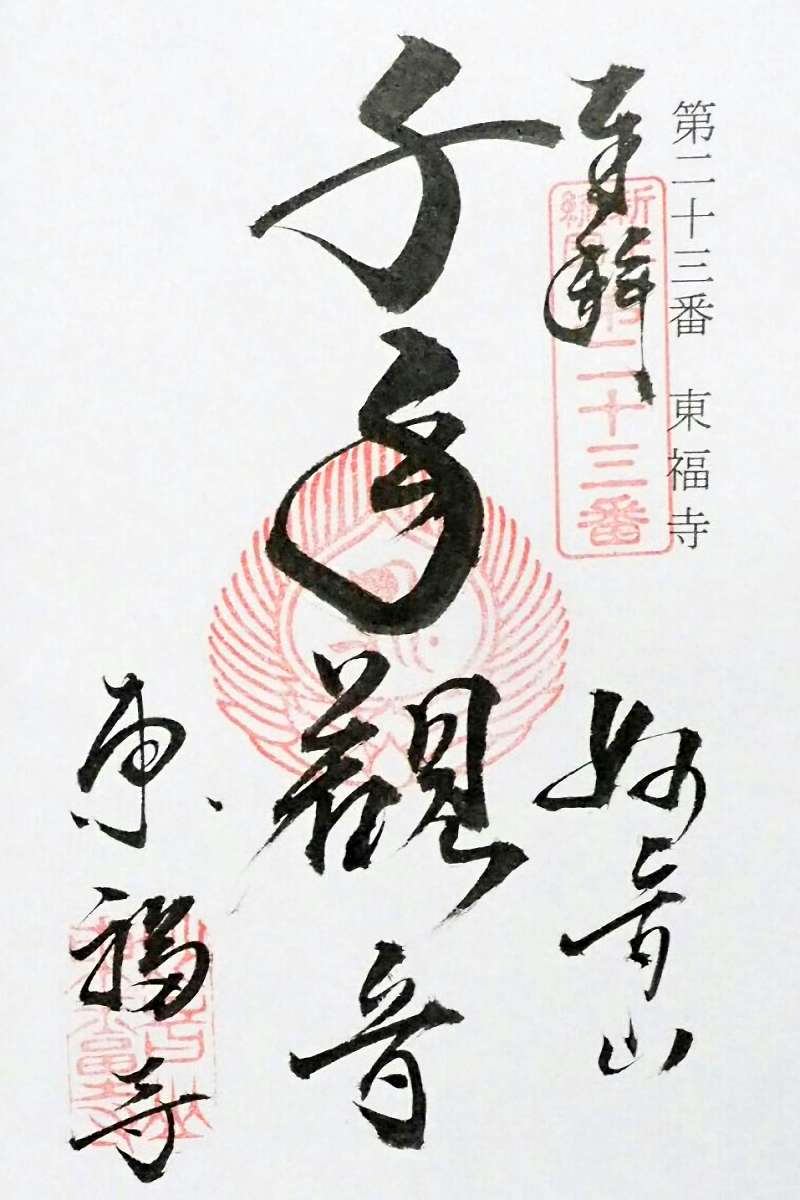 第二十三番 東福寺
奉拝
第二十三番
妙音山
千手觀音
東福寺